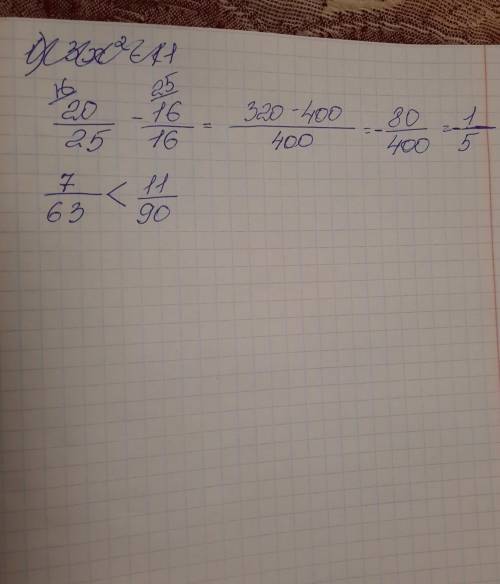 16 25
20/25 - 16/16 = 320-400/400 = -80/400 = -1/5
7/63 < 11/90